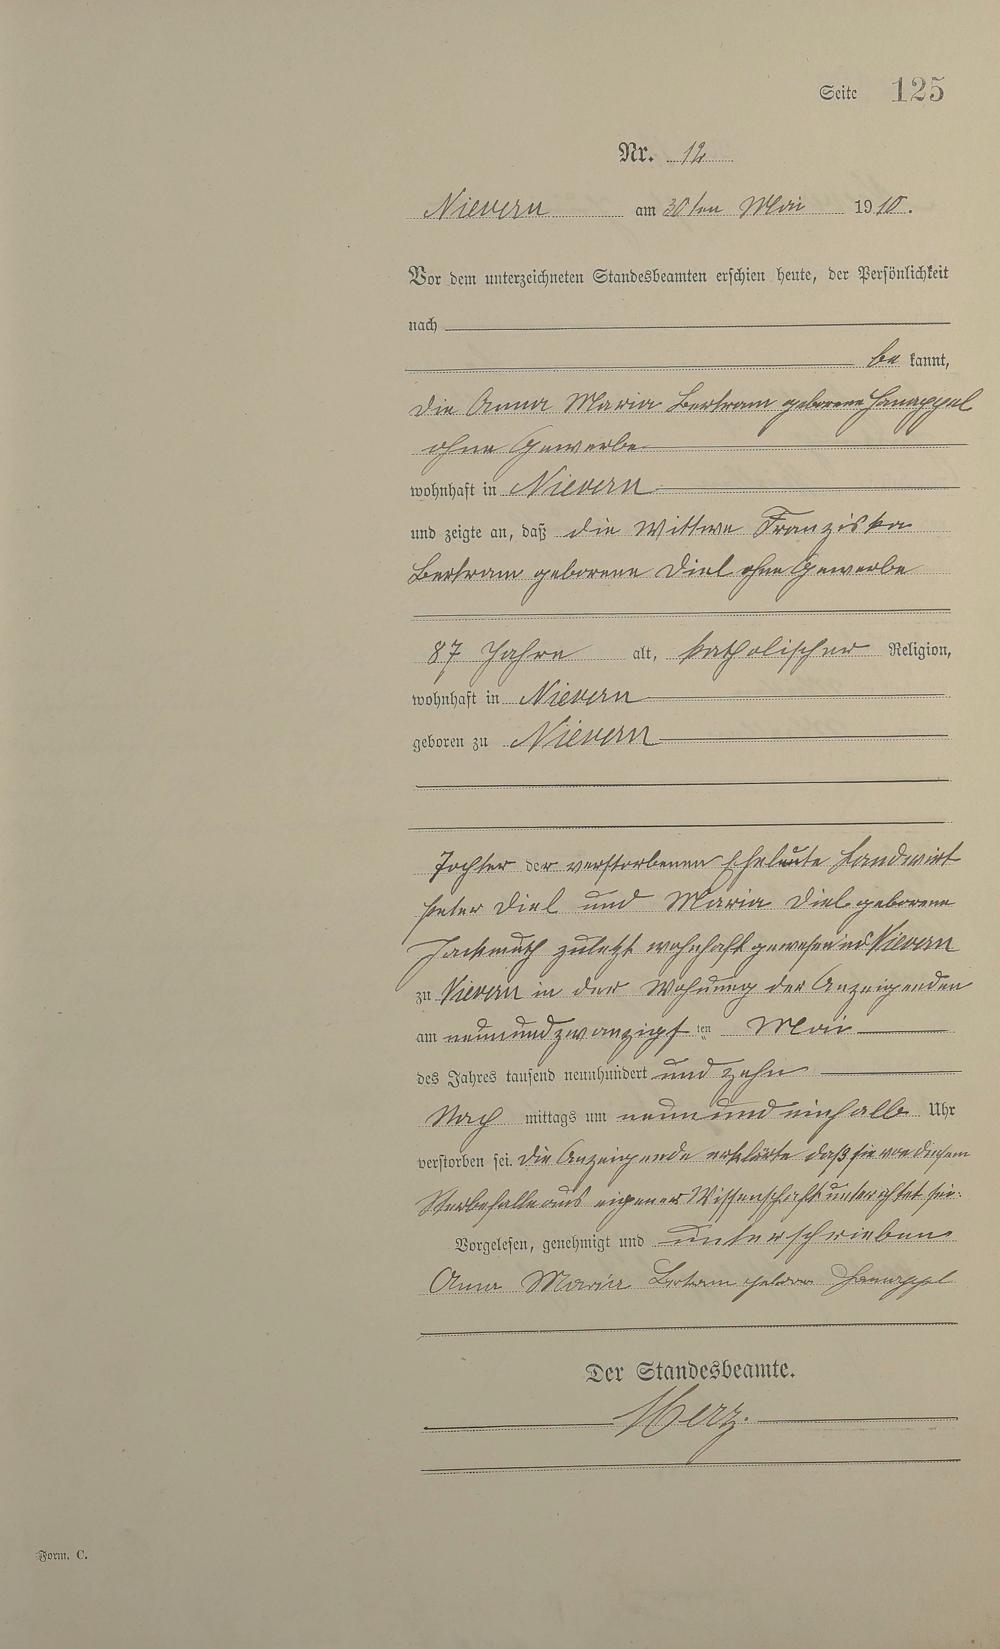 Seite 125
Nr. 12
Nievern am 30ten Mai 1910.
Vor dem unterzeichneten Standesbeamten erschien heute, der Persönlichkeit
nach
be kannt,
die Anna Maria Bertram geborene Hanappel
ohne Gewerbe
wohnhaft in Nievern
und zeigte an, daß die Wittwe Franziska
Bertram geborene Diel ohne Gewerbe
87 Jahre alt, katholischer Religion,
wohnhaft in Nievern
geboren zu Nievern
Tochter der verstorbenen Eheleute Landwirt
Peter Diel und Maria Diel geborene
zuletzt wohnhaft gewesen in Nievern
zu Nievern in der Wohnung der Anzeigenden
am neunundzwanzigsten Mai
des Jahres tausend neunhundert und zehn
Nach mittags um neun und einhalb Uhr
verstorben sei. Die Anzeigende erklärte daß sie von diesem
Sterbefalle aus eigener Wissenschaft unterrichtet sei.
Vorgelesen, genehmigt und unterschrieben
Anna Maria Bertram geborene Hanappel
Der Standesbeamte.
Merz.
Form. C.